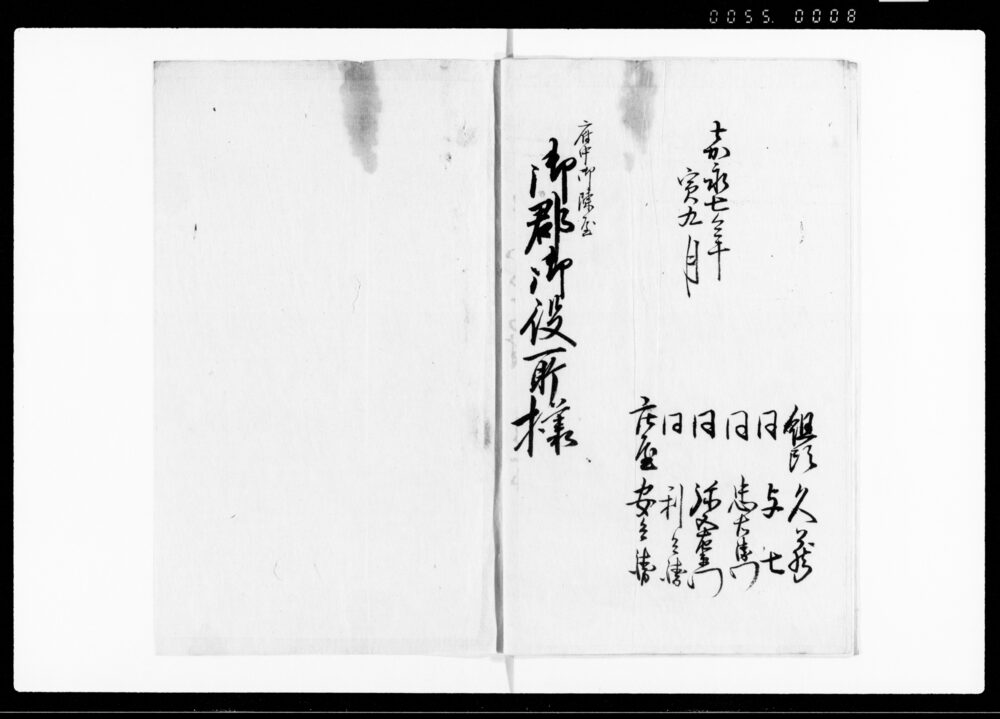 0055. 0008
嘉永七年
寅九月
組頭 久蔵
同 与七
同 忠右衛門
同 弥五右衛門
同 利兵衛
庄屋 安兵衛
府中御陣屋
御郡御役所様